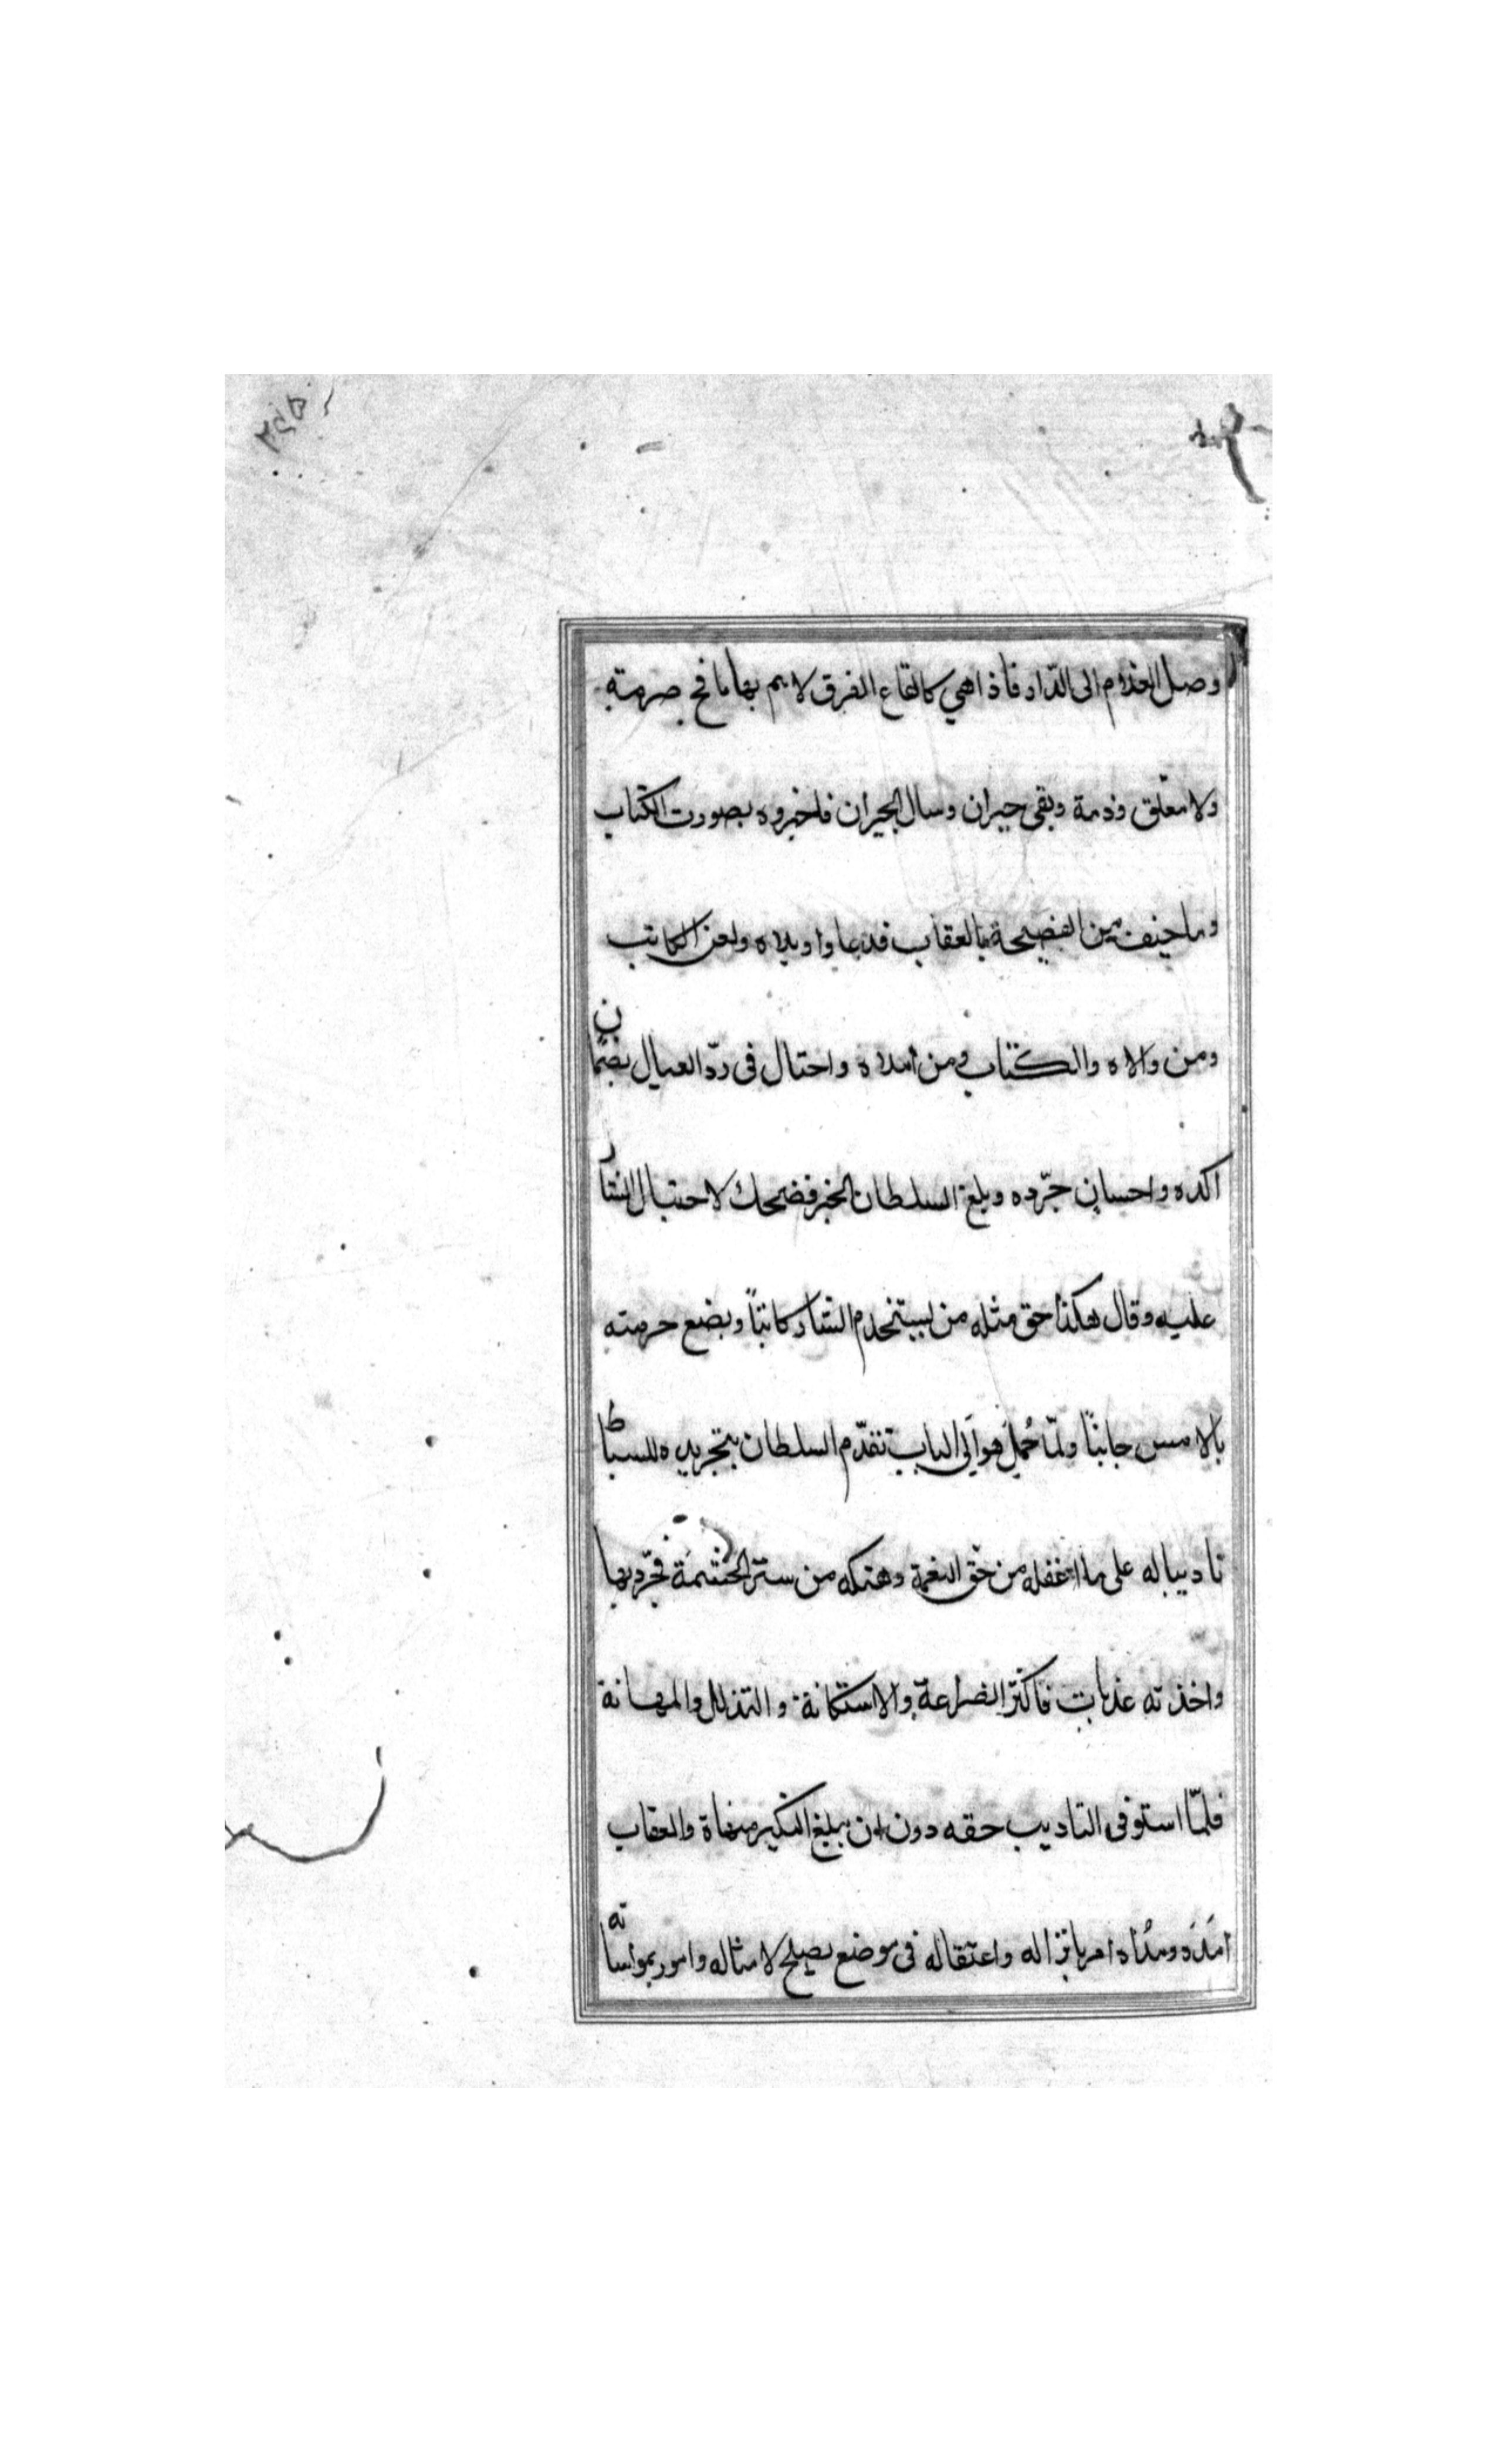 وصل الغلام الى الدّار فاذا هي كالقاع القرق لا بم بها نافخ صرمة
ولا معلق وذمة وبقى حيران وسال الجيران فاخبروه بصورت الكتاب
وما خيف من الفضيحة بالعقاب فدعا واويلاه ولعن الكاتب
ومن والاه والكتاب ومن املاه واحتال فى ردّ العيال بضمان
اكده واحسان جرّده وبلغ السلطان الخبر فضحك لاحتيال الشار
عليه وقال هكذا حق مثله من يستخدم الشار كاتبًا ويضع حرمته
بالامس جانبًا ولمّا حُمل هو الى الباب تقدّم السلطان بتجريده للسياط
تاديبا له على ما اغفله من حق النعمة وهتكه من ستر الحشمة فجرّد بها
واخذته عذبات فاكثر الضراعة والاستكانة والتذلل والمهانة
فلمّا استوفى التاديب حقه دون ان يبلغ النكير منهاه والعقاب
امَدَه ومدُاه امر بانزاله واعتقاله فى موضع يصلح لامثاله وامور بمواساته